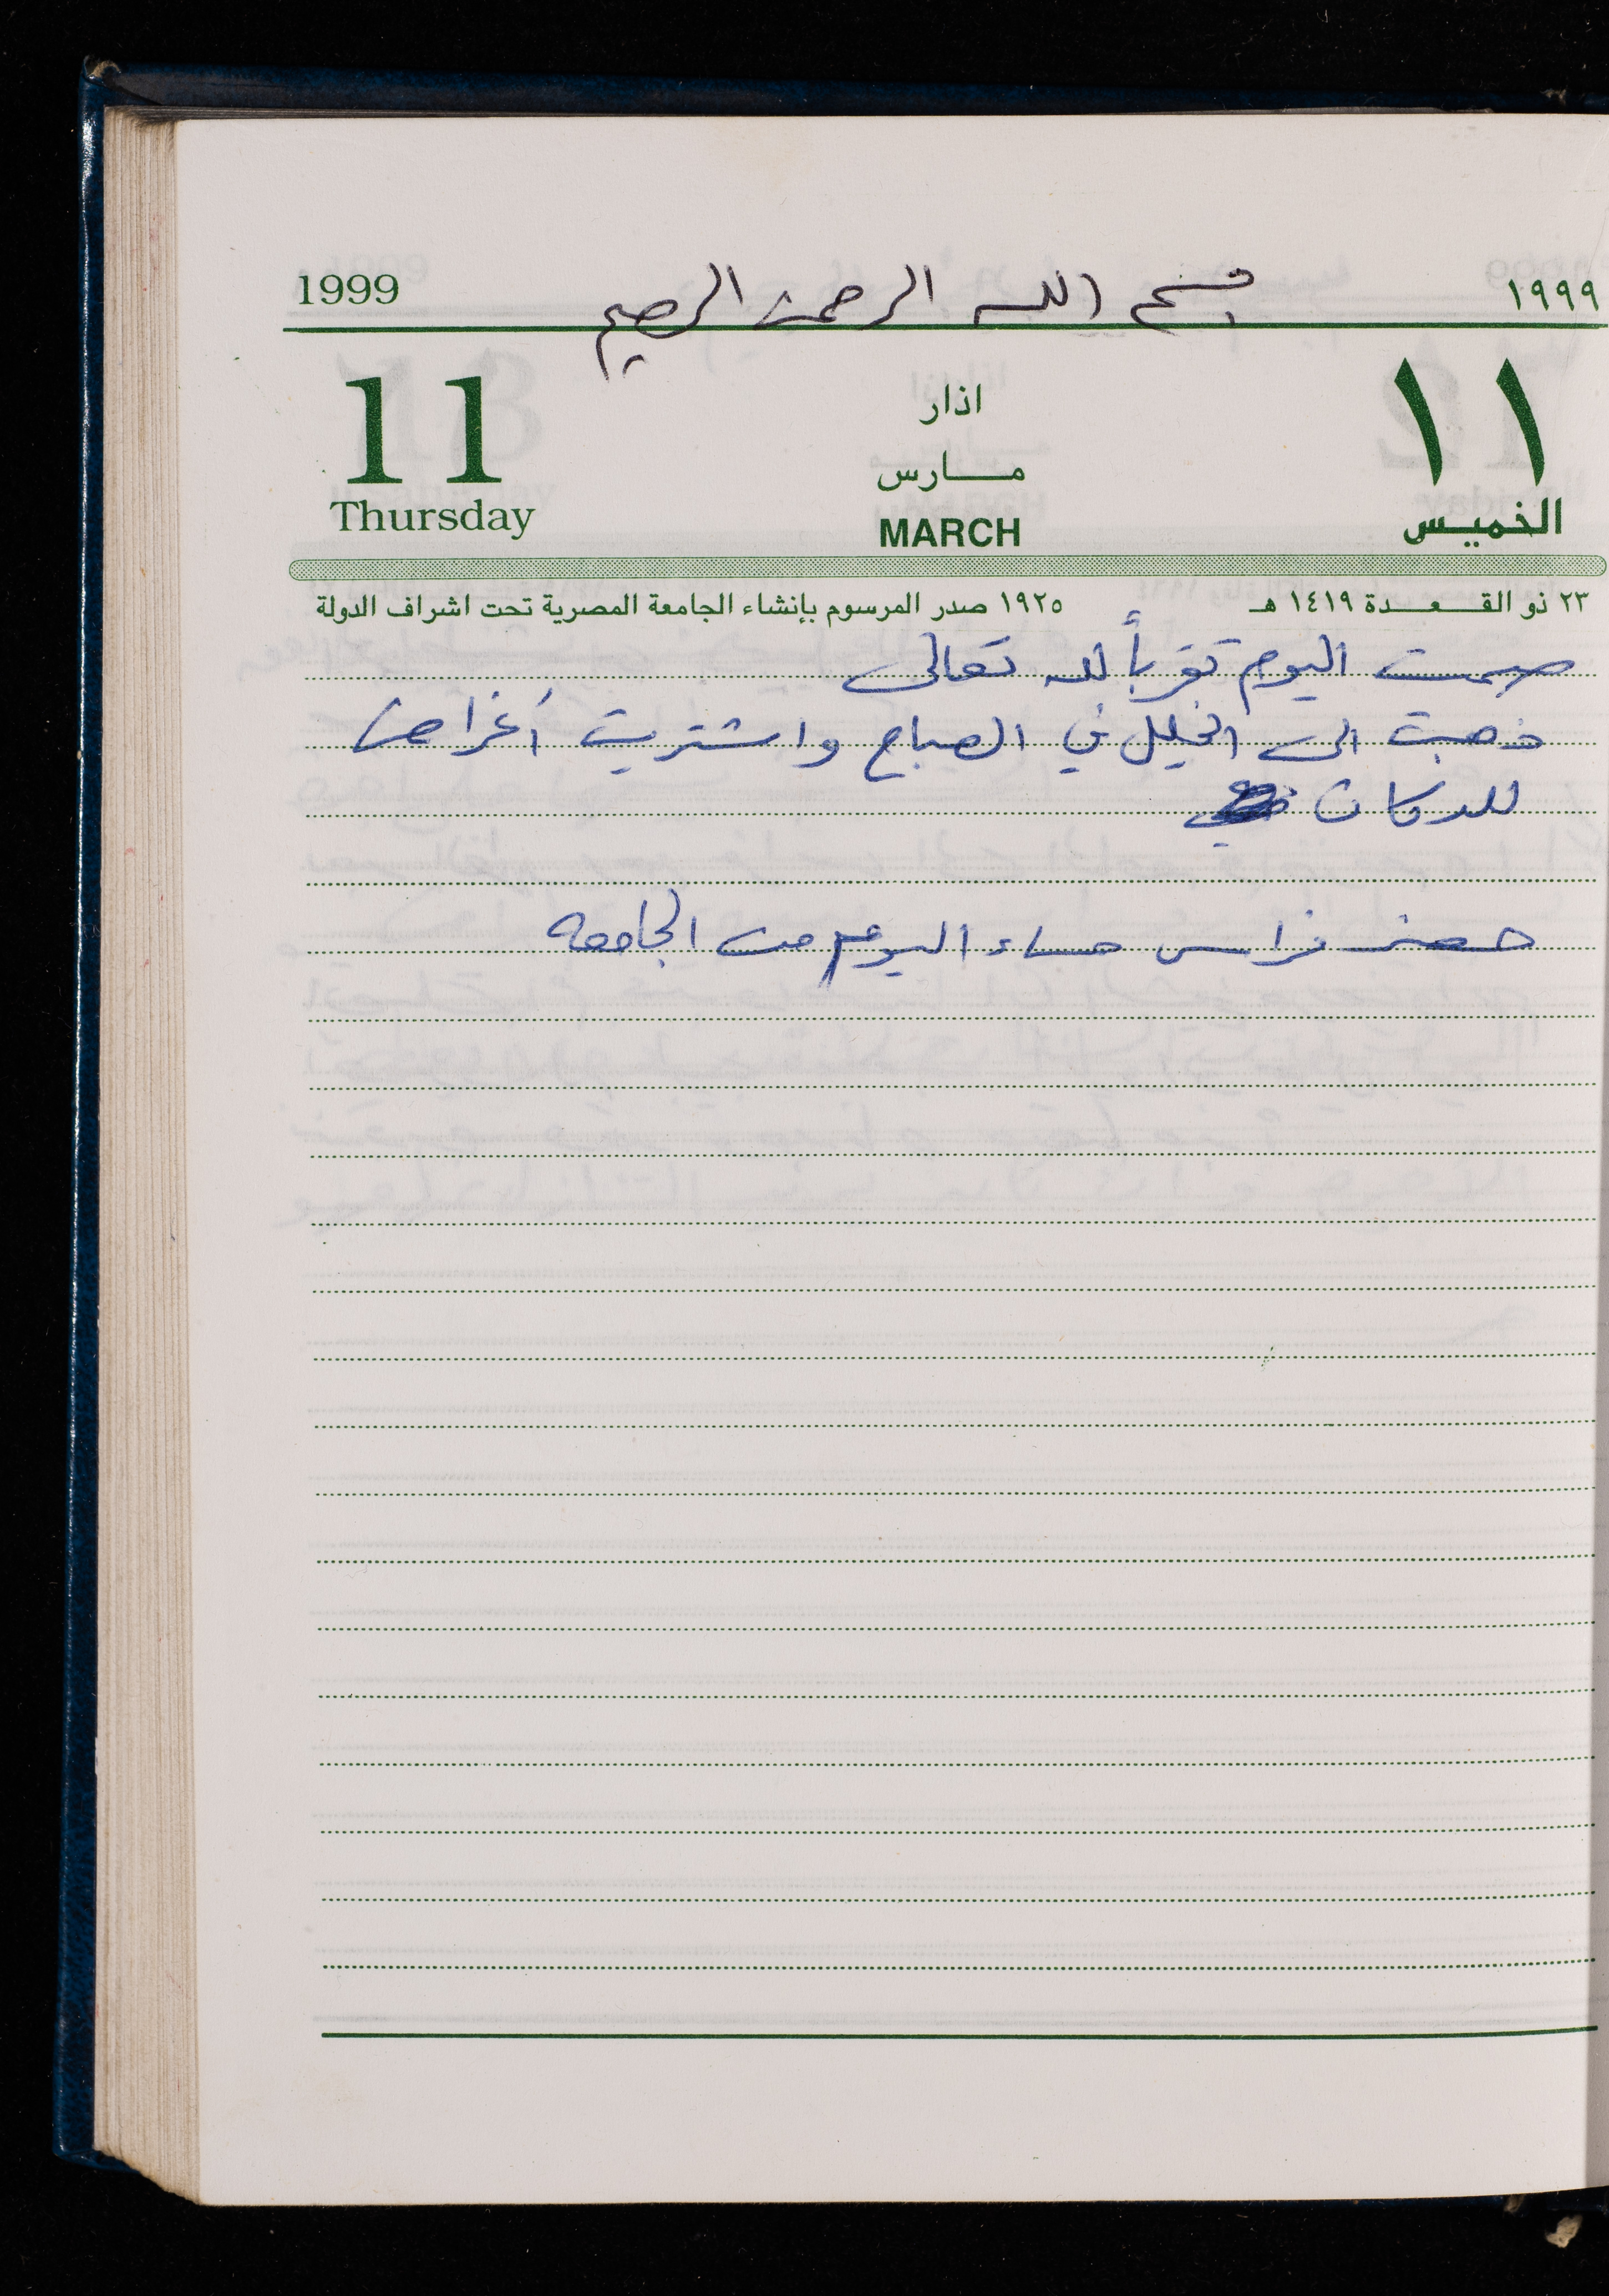 1999 بسم الله الرحمن الرحيم ١٩٩٩
11 اذار ١١
مارس
Thursday MARCH الخميس
٢٣ ذو القعدة ١٤١٩ هـ ١٩٢٥ صدر المرسوم بإنشاء الجامعة المصرية تحت اشراف الدولة
صمت اليوم تقرباً لله تعالى
ذهبت الى الخليل في الصباح واشتريت أغراض
للدكان
حضر فراس مساء اليوم من الجامعه